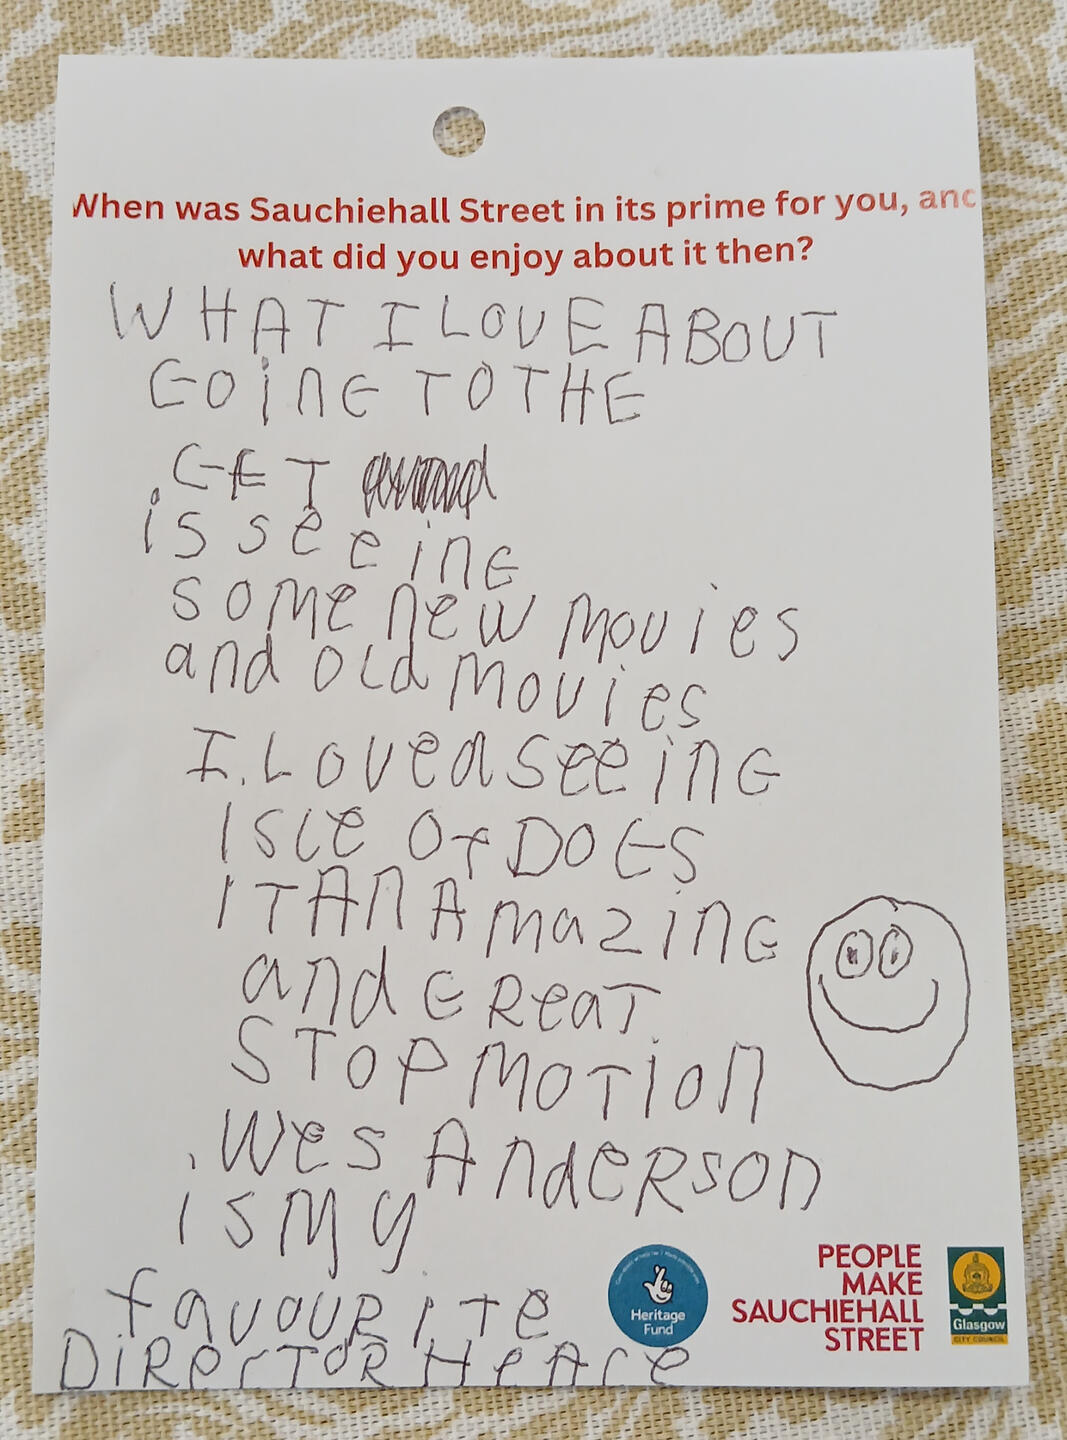 When was Sauchiehall Street in its prime for you, and
what did you enjoy about it then?
WHAT I LOVE ABOUT
GOiNG TO THE
.GFT
is seeinG
some new movies
and old movies
I.Loved seeinG
Isle Of DOGS
ITAn Amazing
and GReaT
STOP MOTiOn
.Wes AndeRson
is my
favouRite
DiRecToR HeAre
Heritage
Fund
PEOPLE
MAKE
SAUCHIEHALL
STREET
Glasgow
CITY COUNCIL